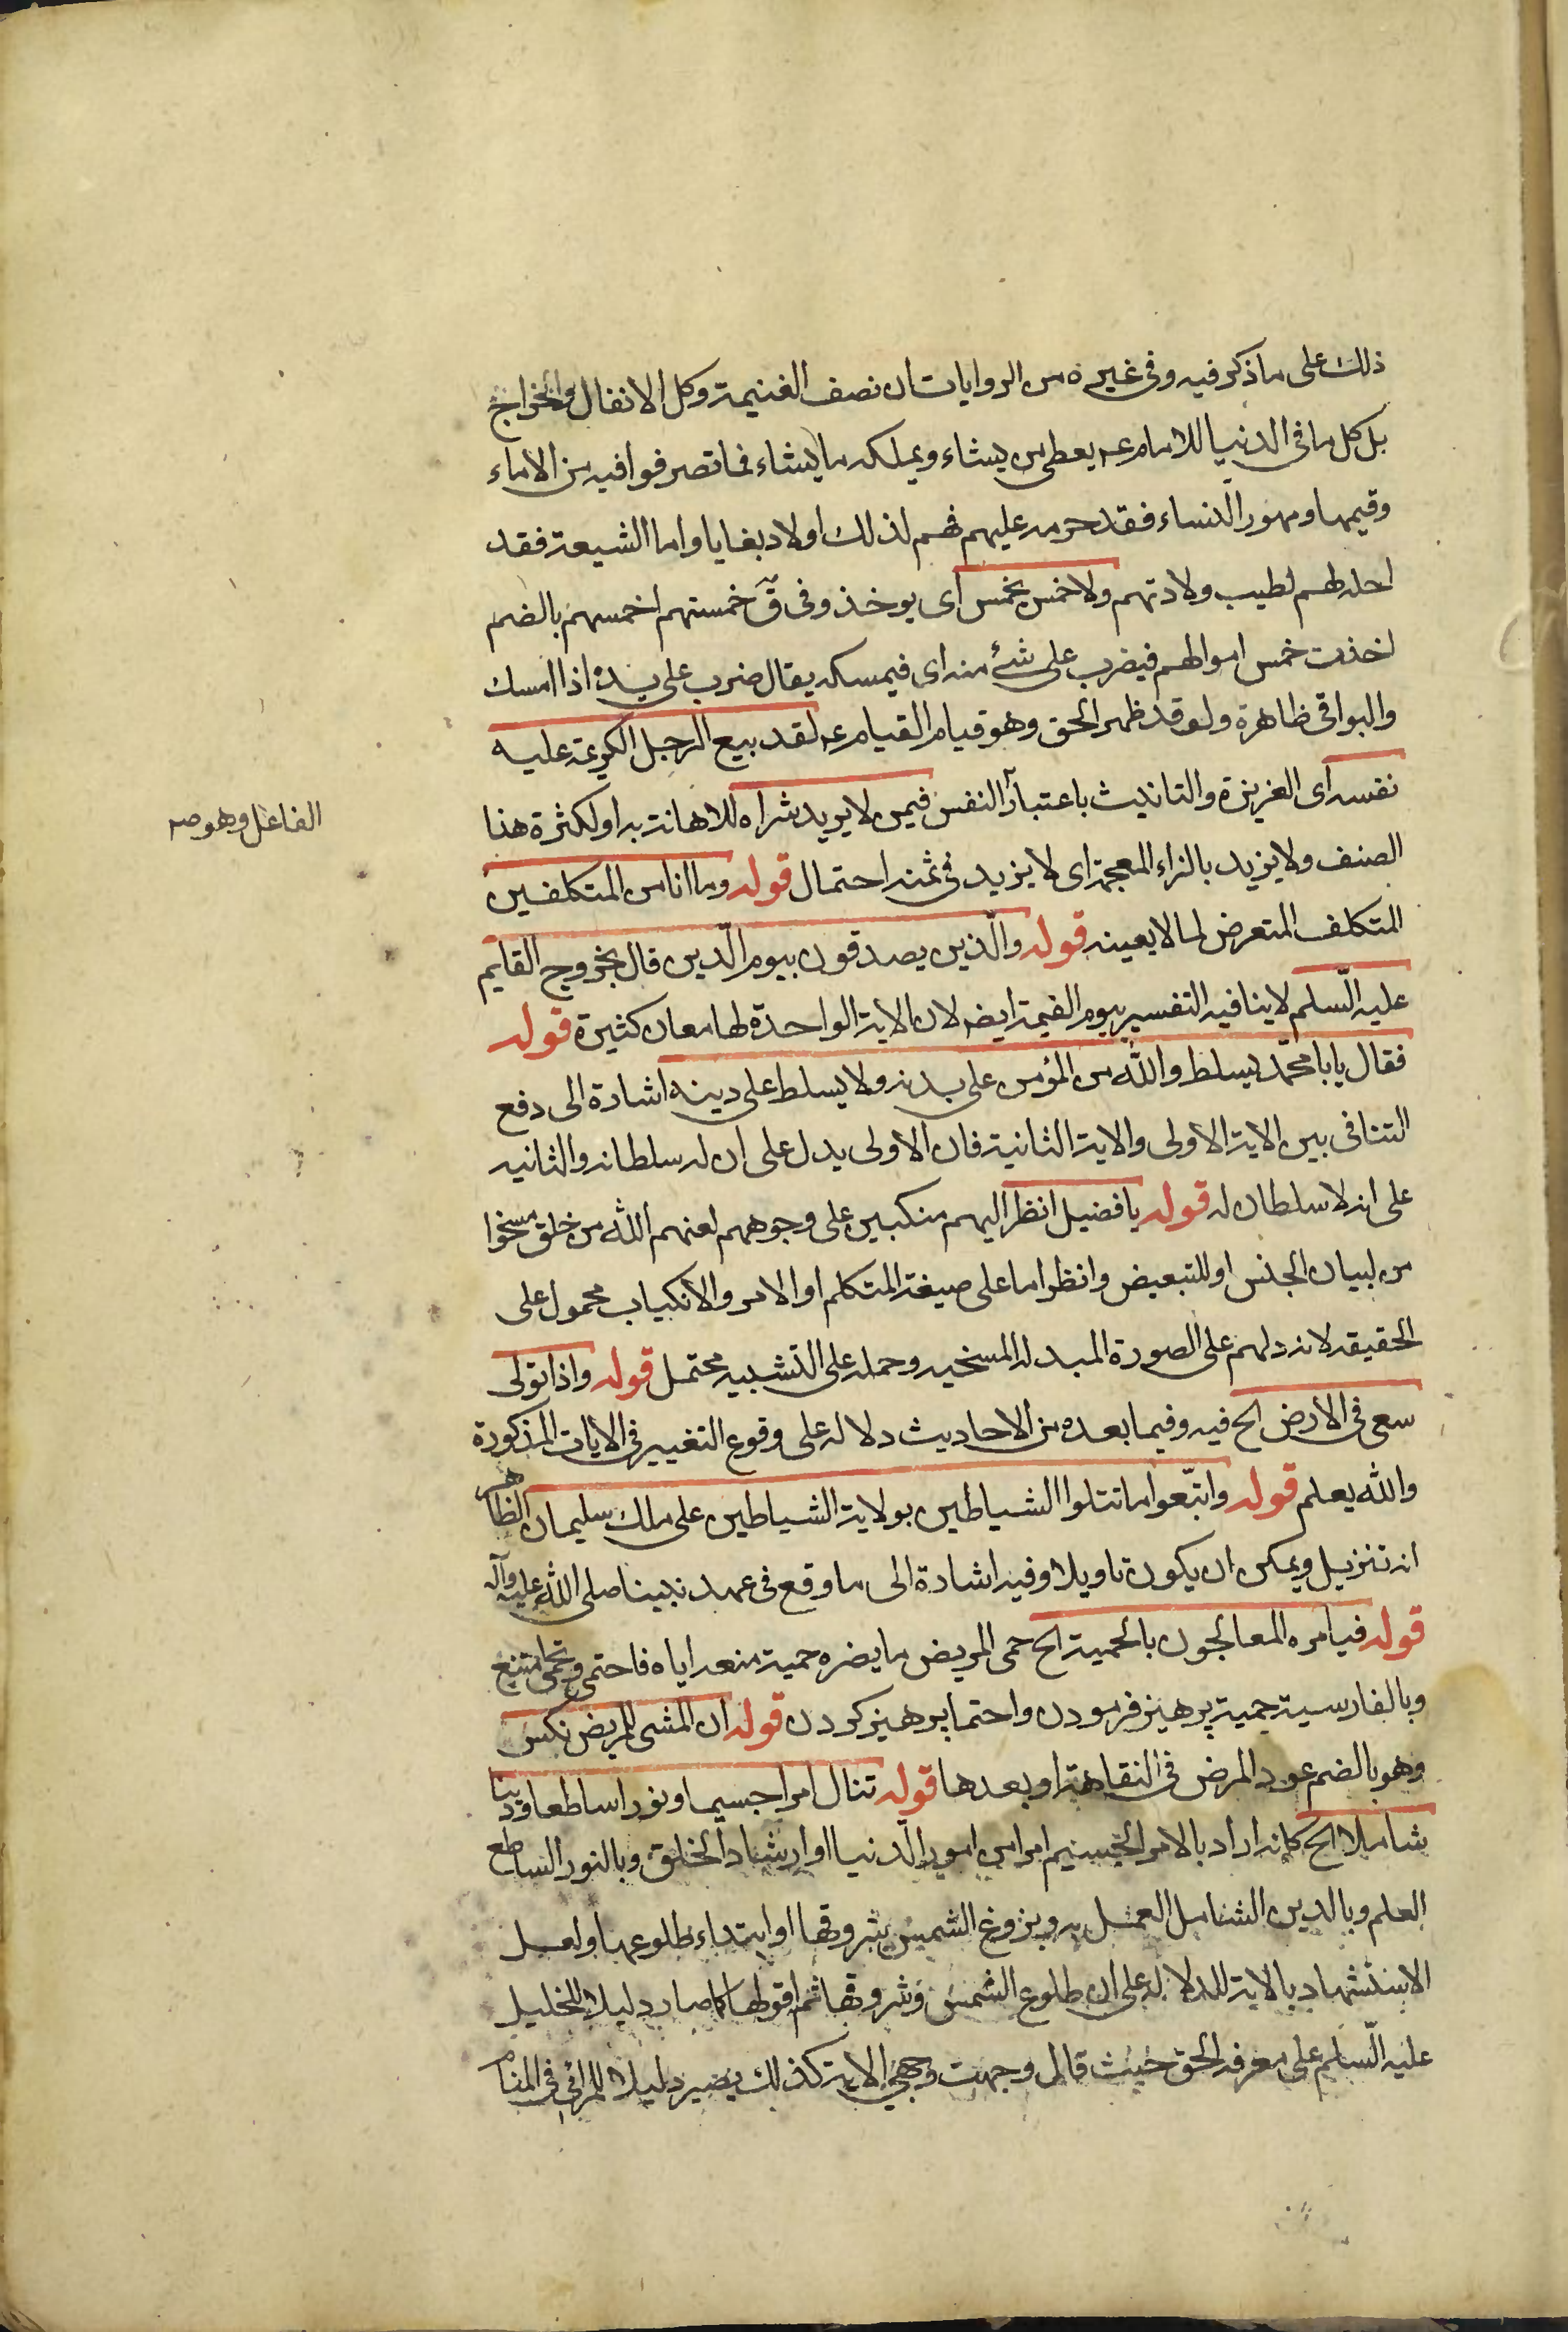 ذلك على ما ذكر فيه وفى غيره من الروايات ان نصف الغنيمة وكل الانفال والخراج
بل كل ما فى الدنيا للامام عم يعطى من يشاء ويملكه ما يشاء فما تصرفوا فيه من الاماء
وقيمها ومهور النساء فقد حرمه عليهم فهم لذلك اولاد بغايا واما الشيعة فقد
احله لهم لطيب ولادتهم ولا خمس يخمس اى يوخذ وفى ق خمستهم اخمسهم بالضم
اخذت خمس اموالهم فيضرب على شئ منه اى فيمسكه يقال ضرب على يده اذا امسك
والبواقى ظاهرة ولو قد ظهر الحق وهو قيام القيام عم لقد بيع الرجل الكريمة عليه
نفسه اى العزيزة والتانيث باعتبار النفس فيمن لا يريد شراه للاهانة به او لكثرة هذا
الصنف ولا يزيد بالزاء المعجمة اى لا يزيد فى ثمنه احتمال قوله وما انا من المتكلفين
المتكلف المتعرض لما لا يعينه قوله والّذين يصدقون بيوم الدّين قال بخروج القايم
عليه السّلم لا ينافيه التفسير بيوم القيمة ايضه لان الاية الواحدة لها معان كثيرة قوله
فقال يابا محمّد يسلط والله من المؤمن على بدنه ولا يسلط على دينه اشارة الى دفع
التنافى بين الاية الاولى والاية الثانية فان الاولى يدل على ان له سلطانه والثانيه
على انه لا سلطان له قوله يا فضيل انظر اليهم منكبين على وجوههم لعنهم الله من خلق مسخوا
من لبيان الجنس او للتبعيض وانظر اما على صيغة المتكلم او الامر والانكباب محمول على
الحقيقه لانه دلهم على الصورة المبدله المسخيه وحمله على التشبيه محتمل قوله واذا تولى
سعى فى الارض الح فيه وفيما بعده من الاحاديث دلاله على وقوع التغيير فى الايات المذكورة
والله يعلم قوله واتبّعوا ما تتلوا الشياطين بولاية الشياطين على ملك سليمان الظاهر
انه تنزيل ويمكن ان يكون تاويلا وفيه اشارة الى ما وقع فى عهد نبينا صلى الله عليه وآله
قوله فيامره المعالجون بالحمية الح حمى المريض ما يضره حمية منعه اياه فاحتمى وتحمى امتنع
وبالفارسية حمية پرهيز فرمودن واحتما پرهيز كردن قوله ان المشى للمريض نكس
وهو بالضم عود المرض فى النقاهة او بعدها قوله تنال امرا جسيما ونورا ساطعا ودينا
شاملا الح كانه اراد بالامر الجسيم امرا من امور الدنيا او ارشاد الخلق وبالنور الساطع
العلم وبالدين الشامل العمل به وبزوغ الشمس شروقها او ابتداء طلوعها ولعل
الاستشهاد بالاية للدلاله على ان طلوع الشمس وشروقها ثم افولها كما صار دليلا للخليل
عليه السّلم على معرفه الحق حيث قال وجهت وجهي الاية كذلك يصير دليلا للرائى فى المنام
الفاعل وهو صه